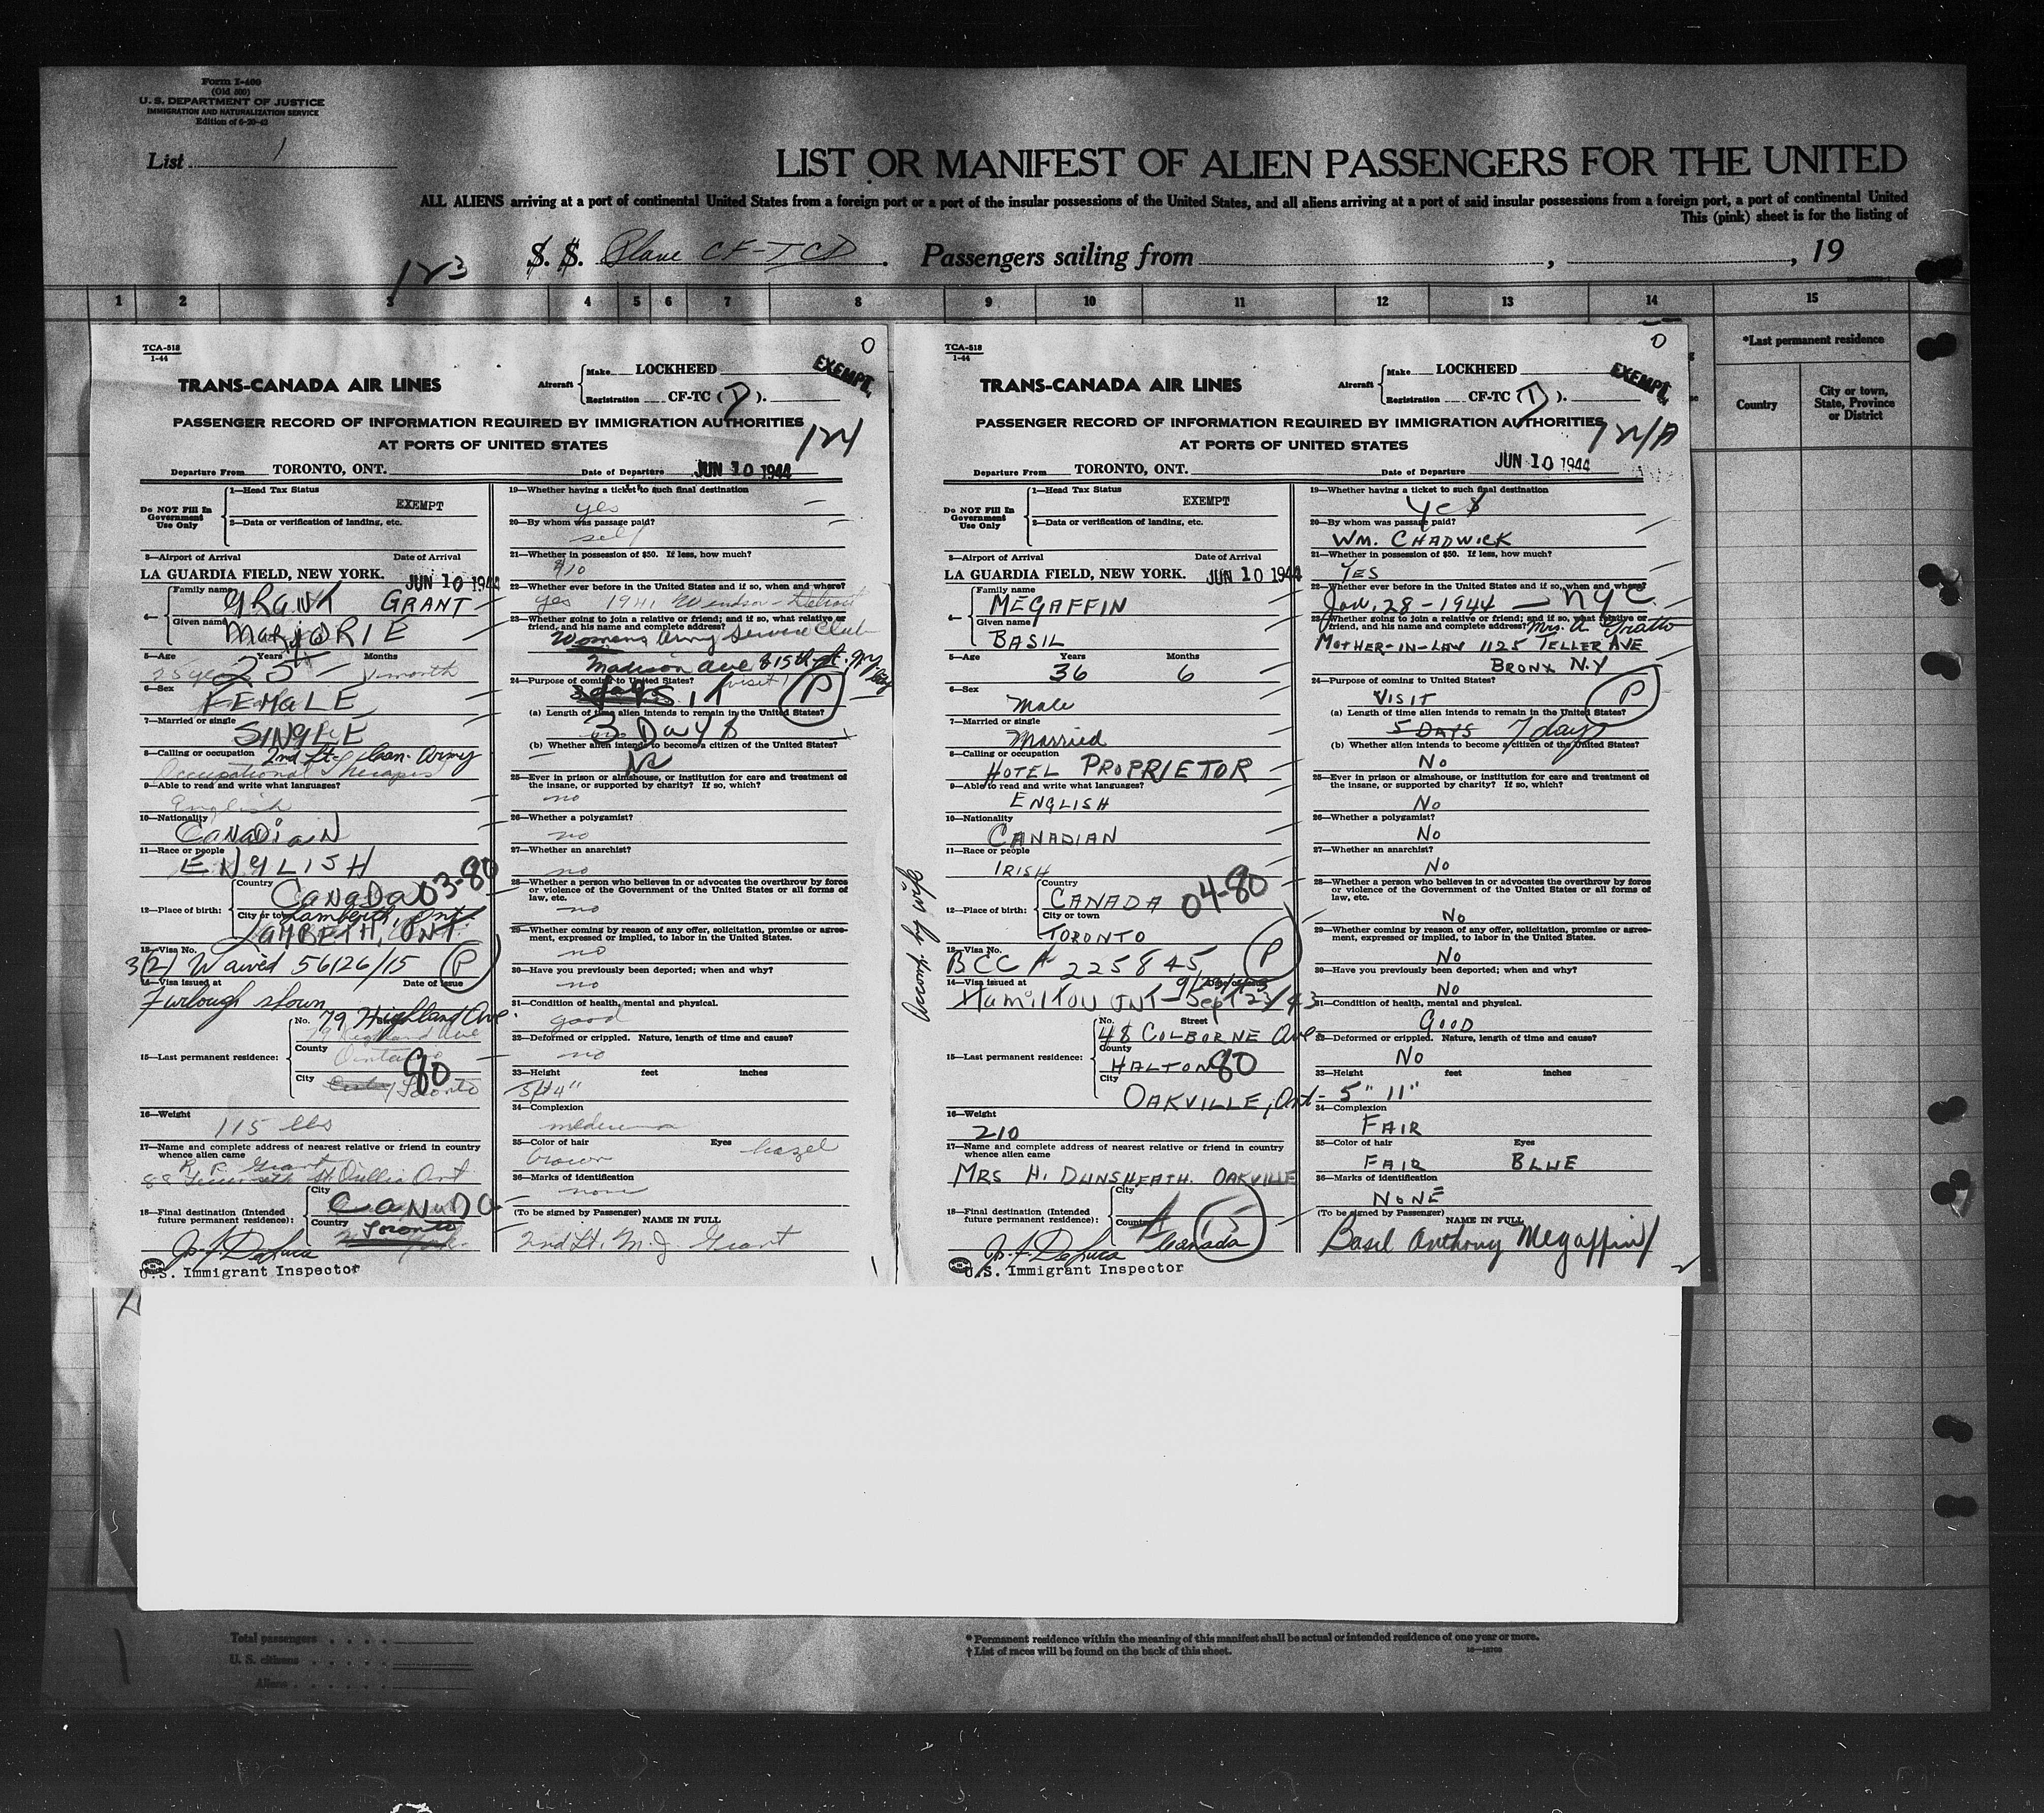 Form I-400
(Old 500)
U. S. DEPARTMENT OF JUSTICE
IMMIGRATION AND NATURALIZATION SERVICE
Edition of 6-20-42
List 1
LIST OR MANIFEST OF ALIEN PASSENGERS FOR THE UNITED
ALL ALIENS arriving at a port of continental United States from a foreign port or a port of the insular possessions of the United States, and all aliens arriving at a port of said insular possessions from a foreign port, a port of continental United
This (pink) sheet is for the listing of
123
S. S. Plane CF-TCD. Passengers sailing from , , 19
1 2 3 4 5 6 7 8 9 10 11 12 13 14 15
*Last permanent residence
Country
City or town, State, Province or District
TCA-518
1-44
0
EXEMPT
TRANS-CANADA AIR LINES
Aircraft
Make LOCKHEED
Registration CF-TC (D).
PASSENGER RECORD OF INFORMATION REQUIRED BY IMMIGRATION AUTHORITIES
AT PORTS OF UNITED STATES
124
Departure From TORONTO, ONT.
Date of Departure JUN 10 1944
Do NOT Fill In Government Use Only
1—Head Tax Status
EXEMPT
2—Data or verification of landing, etc.
3—Airport of Arrival Date of Arrival
LA GUARDIA FIELD, NEW YORK. JUN 10 1944
4— Family name
GRANT GRANT
Given name
MARJORIE
5—Age Years Months
25 years 25 1 month
6—Sex
FEMALE
7—Married or single
SINGLE
8—Calling or occupation 2nd Lt. Can. Army
Occupational Therapist
9—Able to read and write what languages?
English
10—Nationality
CANADIAN
11—Race or people
ENGLISH
12—Place of birth:
Country
CANADA 03-80
City or town Lambeth, Ont.
LAMBETH, ONT.
13—Visa No.
3(2) Waived 56126/15 P
14—Visa issued at Date of issue
Furlough shown
15—Last permanent residence:
No. 79 Highland Ave.
79 Highland Ave
County
Ontario
80
City
Toronto
16—Weight
115 lbs
17—Name and complete address of nearest relative or friend in country whence alien came
R. R. Grant
Orillia Ont
18—Final destination (Intended future permanent residence):
City
CANADA
Country
Toronto
U.S. Immigrant Inspector
19—Whether having a ticket to such final destination
yes
20—By whom was passage paid?
self
21—Whether in possession of $50. If less, how much?
$10
22—Whether ever before in the United States and if so, when and where?
yes 1941 Windsor - Detroit
23—Whether going to join a relative or friend; and if so, what relative or friend, and his name and complete address?
Womens Army Service Club
Madison Ave
24—Purpose of coming to United States? visit
P
(a) Length of time alien intends to remain in the United States?
3 DAYS
(b) Whether alien intends to become a citizen of the United States?
No
25—Ever in prison or almshouse, or institution for care and treatment of the insane, or supported by charity? If so, which?
no
26—Whether a polygamist?
no
27—Whether an anarchist?
no
28—Whether a person who believes in or advocates the overthrow by force or violence of the Government of the United States or all forms of law, etc.
no
29—Whether coming by reason of any offer, solicitation, promise or agreement, expressed or implied, to labor in the United States.
no
30—Have you previously been deported; when and why?
no
31—Condition of health, mental and physical.
good
32—Deformed or crippled. Nature, length of time and cause?
no
33—Height feet inches
5'4"
34—Complexion
medium
35—Color of hair Eyes
brown hazel
36—Marks of identification
none
(To be signed by Passenger) NAME IN FULL
2nd Lt. M. J. Grant
1
TCA-518
1-44
0
EXEMPT
TRANS-CANADA AIR LINES
Aircraft
Make LOCKHEED
Registration CF-TC (D).
PASSENGER RECORD OF INFORMATION REQUIRED BY IMMIGRATION AUTHORITIES
AT PORTS OF UNITED STATES
124/A
Departure From TORONTO, ONT.
Date of Departure JUN 10 1944
Do NOT Fill In Government Use Only
1—Head Tax Status
EXEMPT
2—Data or verification of landing, etc.
3—Airport of Arrival Date of Arrival
LA GUARDIA FIELD, NEW YORK. JUN 10 1944
4— Family name
MEGAFFIN
Given name
BASIL
5—Age Years Months
36 6
6—Sex
Male
7—Married or single
Married
8—Calling or occupation
HOTEL PROPRIETOR
9—Able to read and write what languages?
ENGLISH
10—Nationality
CANADIAN
11—Race or people
IRISH
Accomp. by wife
12—Place of birth:
Country
CANADA 04-80
City or town
TORONTO
13—Visa No.
BCC A 225845 P
14—Visa issued at Date of issue
Hamilton ONT - Sept 23/43
15—Last permanent residence:
No. Street
48 COLBORNE Ave
County
HALTON 80
City
OAKVILLE, Ont-
16—Weight
210
17—Name and complete address of nearest relative or friend in country whence alien came
MRS H. DUNSHEATH. OAKVILLE
18—Final destination (Intended future permanent residence):
City
Country
Canada
U.S. Immigrant Inspector
19—Whether having a ticket to such final destination
YES
20—By whom was passage paid?
WM. CHADWICK
21—Whether in possession of $50. If less, how much?
YES
22—Whether ever before in the United States and if so, when and where?
Jan. 28 - 1944 — NYC
23—Whether going to join a relative or friend; and if so, what relative or friend, and his name and complete address? Mrs. A
MOTHER-IN-LAW 1125 TELLER AVE
BRONX N.Y
24—Purpose of coming to United States?
VISIT P
(a) Length of time alien intends to remain in the United States?
5 DAYS 7 days
(b) Whether alien intends to become a citizen of the United States?
No
25—Ever in prison or almshouse, or institution for care and treatment of the insane, or supported by charity? If so, which?
No
26—Whether a polygamist?
No
27—Whether an anarchist?
No
28—Whether a person who believes in or advocates the overthrow by force or violence of the Government of the United States or all forms of law, etc.
No
29—Whether coming by reason of any offer, solicitation, promise or agreement, expressed or implied, to labor in the United States.
No
30—Have you previously been deported; when and why?
No
31—Condition of health, mental and physical.
GOOD
32—Deformed or crippled. Nature, length of time and cause?
No
33—Height feet inches
5" 11"
34—Complexion
FAIR
35—Color of hair Eyes
FAIR BLUE
36—Marks of identification
NONE
(To be signed by Passenger) NAME IN FULL
Basil Anthony Megaffin
2
Total passengers
U. S. citizens
Aliens
* Permanent residence within the meaning of this manifest shall be actual or intended residence of one year or more.
† List of races will be found on the back of this sheet.